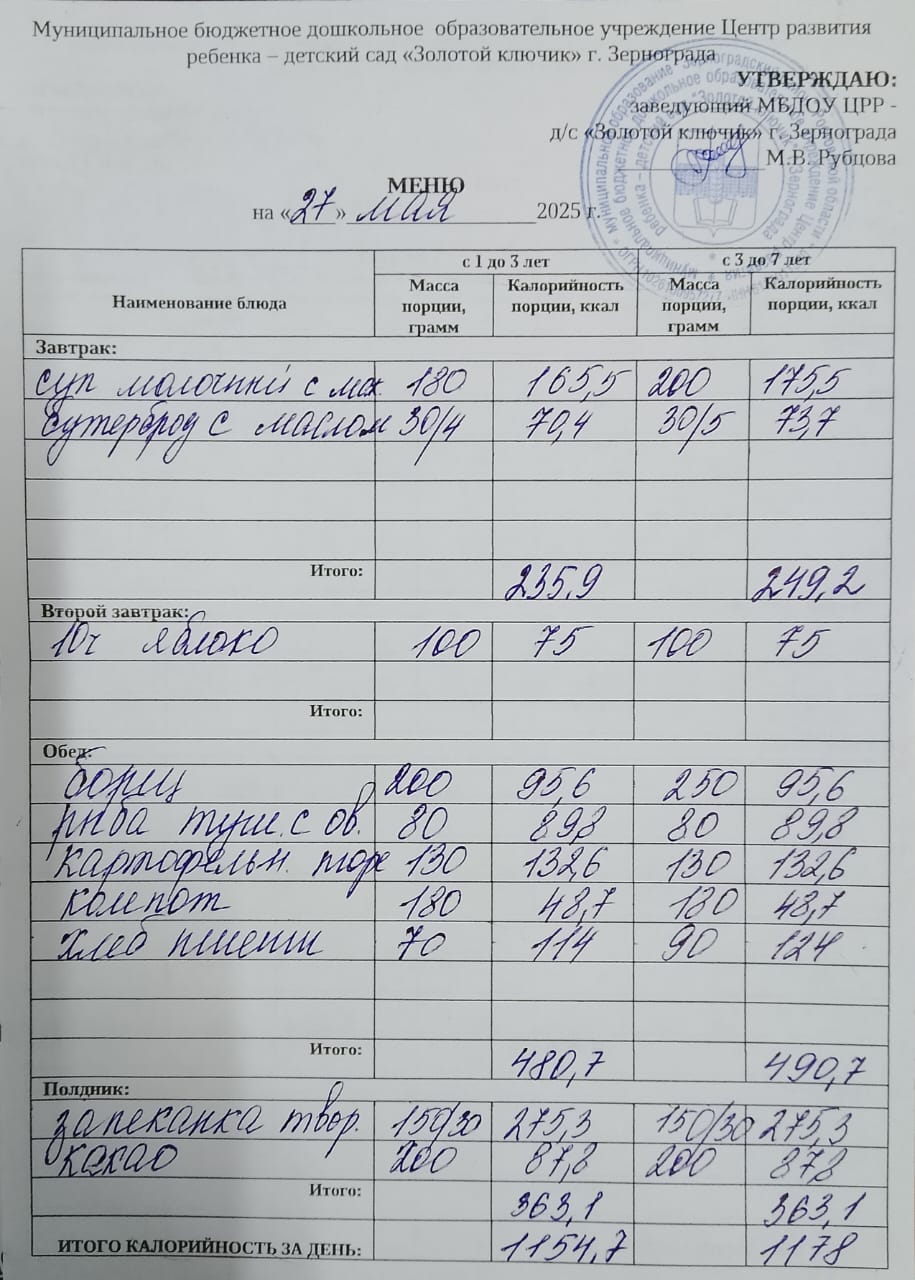 Муниципальное бюджетное дошкольное образовательное учреждение Центр развития
ребенка – детский сад «Золотой ключик» г. Зернограда
УТВЕРЖДАЮ:
заведующий МБДОУ ЦРР -
д/с «Золотой ключик» г. Зернограда
М.В. Рубцова
МЕНЮ
на «27» мая 2025 г.
Наименование блюда с 1 до 3 лет с 3 до 7 лет
Масса порции, грамм Калорийность порции, ккал Масса порции, грамм Калорийность порции, ккал
Завтрак:
суп молочный с мак. 180 165,5 200 175,5
Бутерброд с маслом 30/4 70,4 30/5 73,7
Итого: 235,9 249,2
Второй завтрак:
10ч яблоко 100 75 100 75
Итого:
Обед:
борщ 200 95,6 250 95,6
рыба туш. с ов. 80 89,8 80 89,8
картофельн. пюре 130 132,6 130 132,6
компот 180 48,7 180 48,7
хлеб пшенич 70 114 90 124
Итого: 480,7 490,7
Полдник:
запеканка твор. 150/30 275,3 150/30 275,3
какао 200 87,8 200 87,8
Итого: 363,1 363,1
ИТОГО КАЛОРИЙНОСТЬ ЗА ДЕНЬ: 1154,7 1178